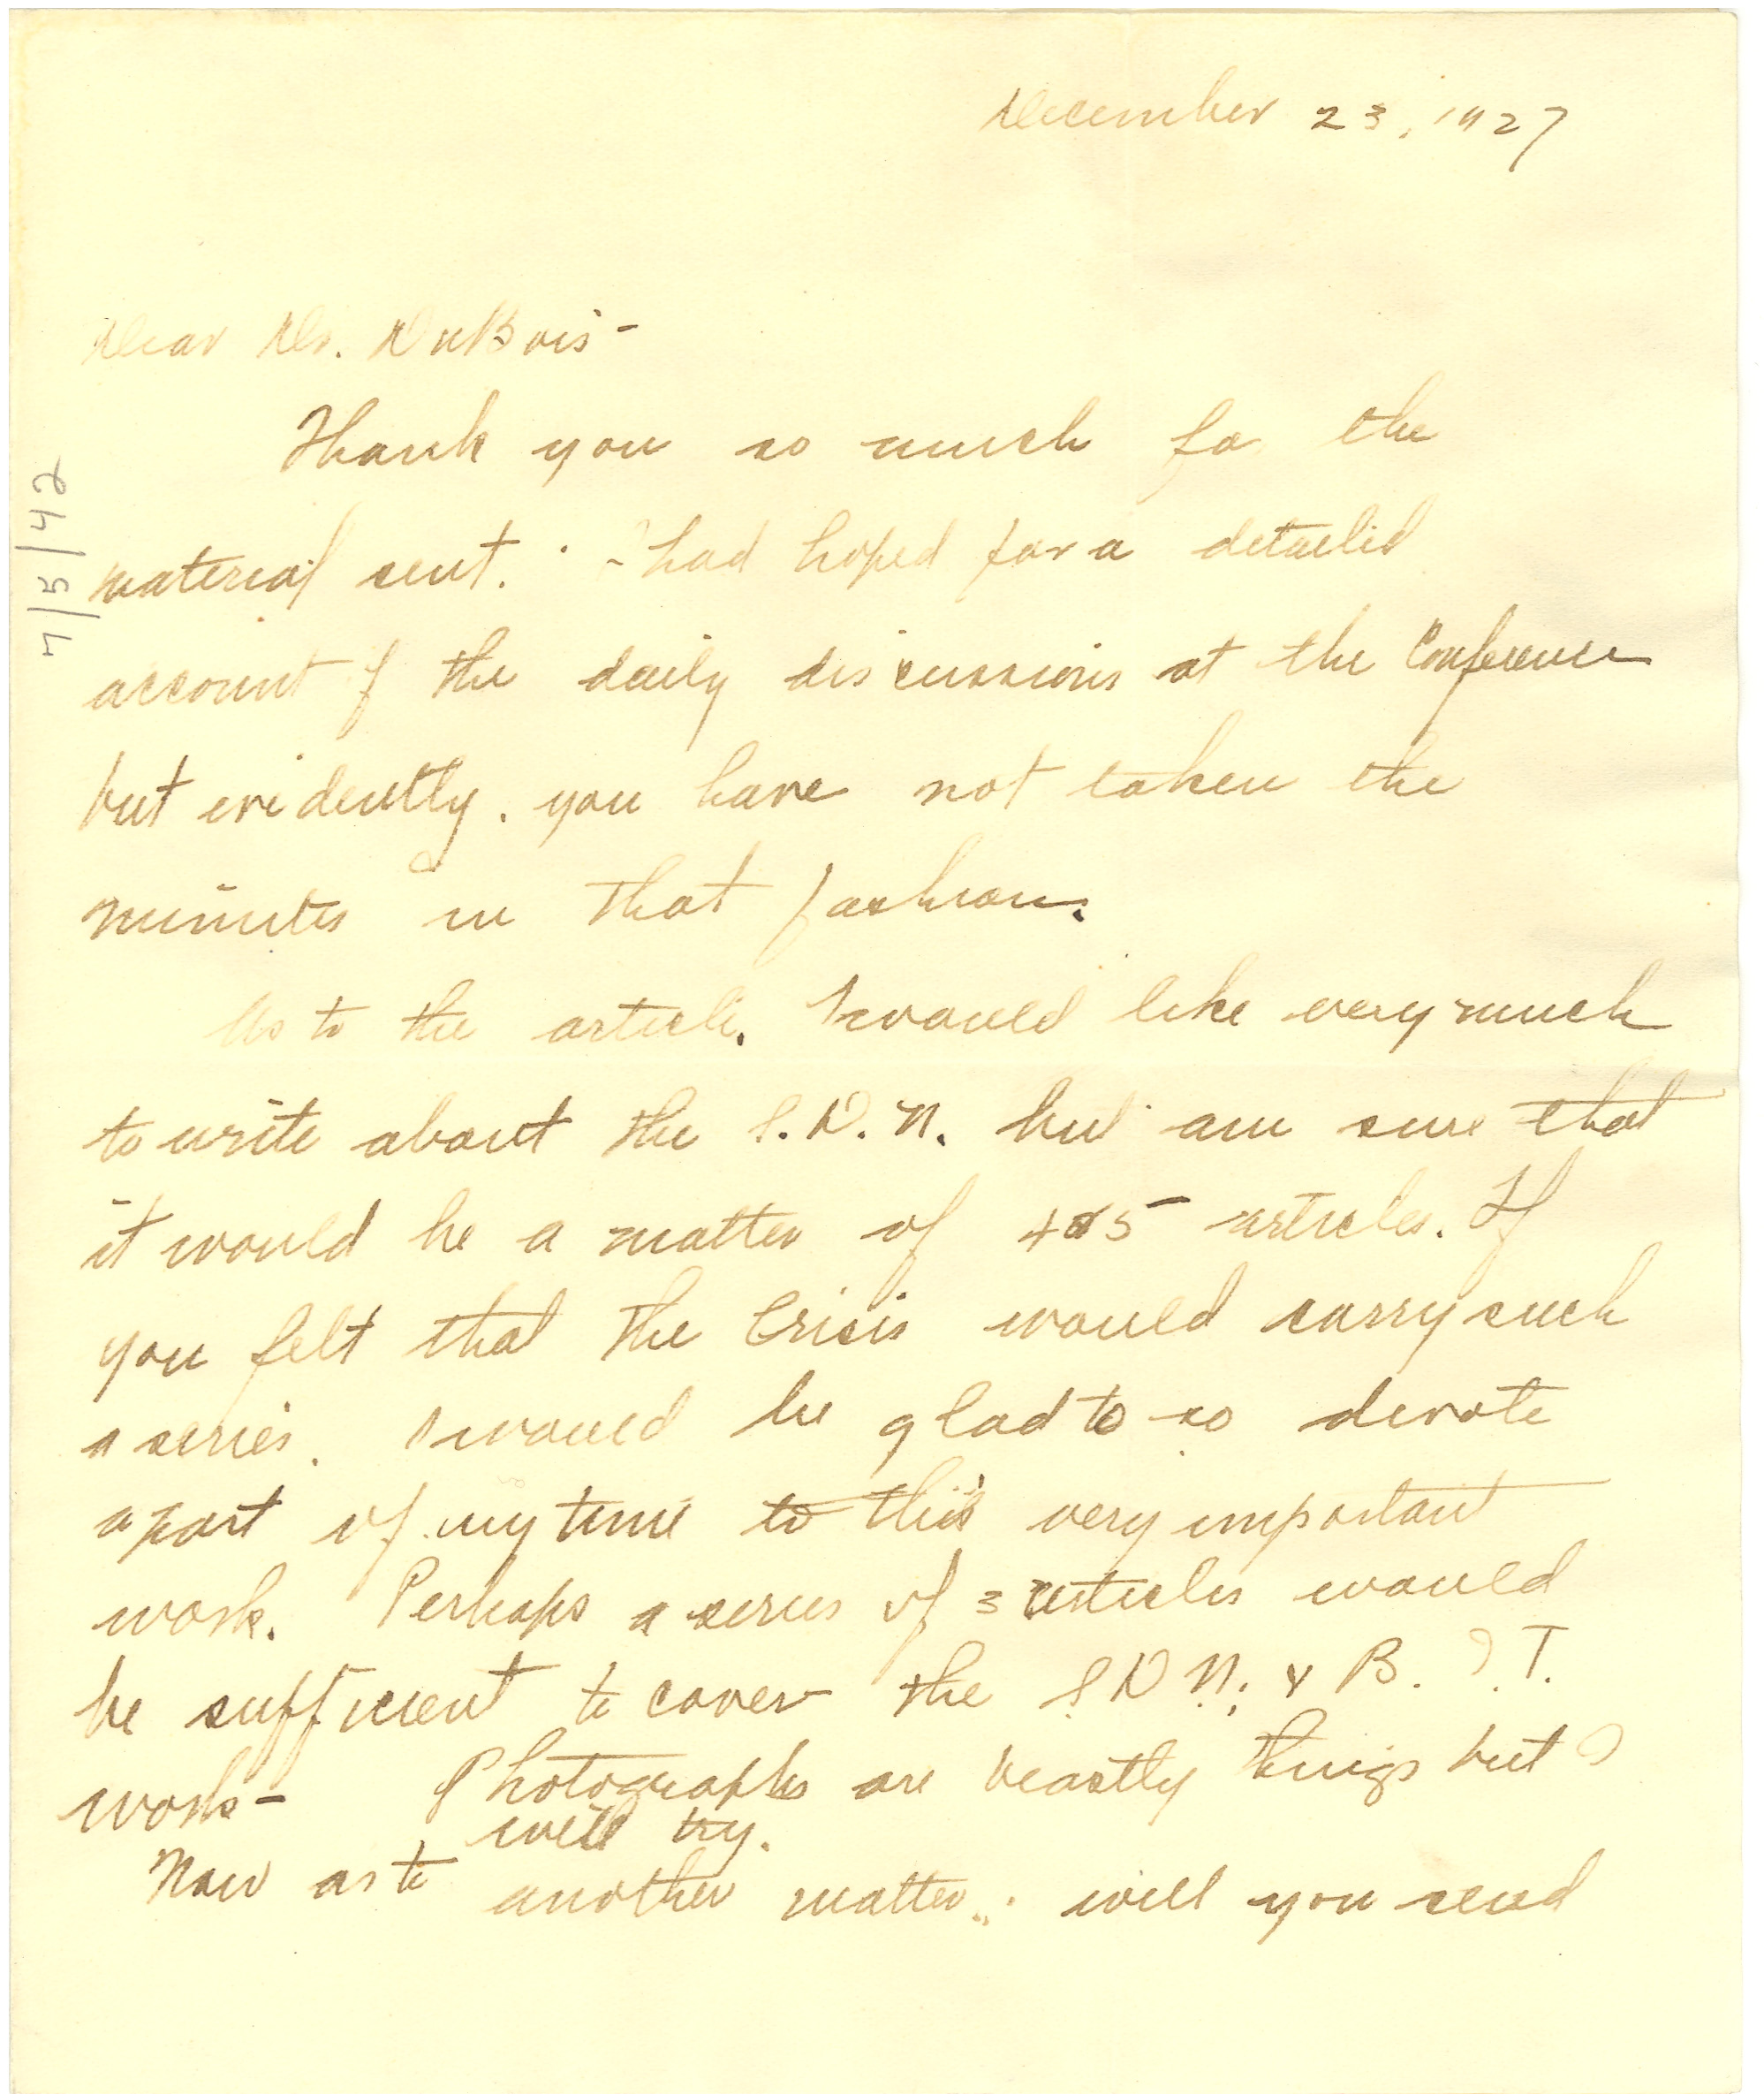 December 23, 1927
Dear Dr. DuBois -
Thank you so much for the
material sent. I had hoped for a detailed
account of the daily discussions at the Conference
but evidently, you have not taken the
minutes in that fashion.
As to the article. I would like very much
to write about the S.D.N. but am sure that
it would be a matter of 4 or 5 articles. If
you felt that the Crisis would carry such
a series, I would be glad to so devote
a part of my time to this very important
work. Perhaps a series of 3 articles would
be sufficient to cover the S.D.N. & B. I. T.
work - Photographs are beastly things but I
will try.
Now as to another matter: will you send
4/5/42